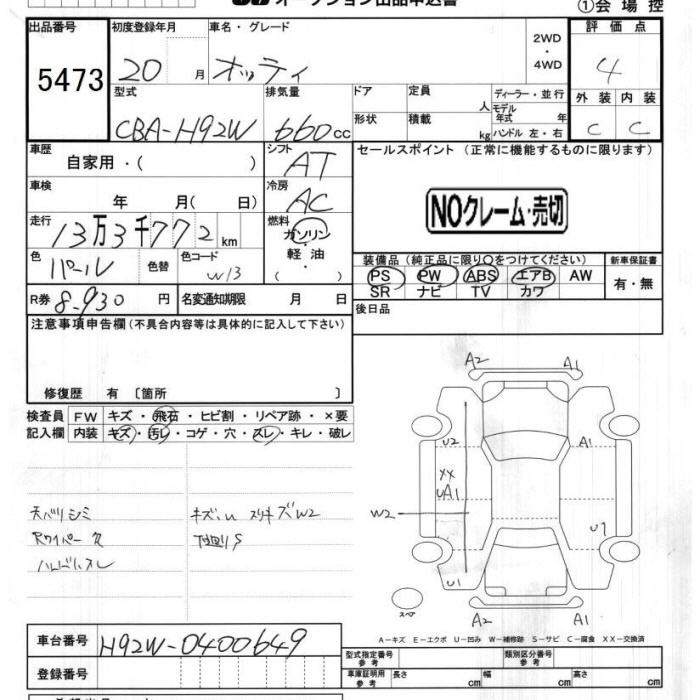 オークション出品申込書
①会場控
出品番号 初度登録年月 車名・グレード 2WD・4WD 評価点
5473 20 月 オッティ 4
型式 排気量 ドア 定員 人 ディーラー・並行 外装 内装
CBA-H92W 660cc 形状 積載 kg モデル年式 年 ハンドル 左・右 C C
車歴 シフト セールスポイント (正常に機能するものに限ります)
自家用・( ) AT
車検 年 月( 日) 冷房 AC
NOクレーム・売切
走行 13万3千772km 燃料 ガソリン・軽油
色 パール 色替 色コード W13
装備品 (純正品に限り○をつけてください) 新車保証書
PS PW ABS エアB AW 有・無
SR ナビ TV カワ
R券 8,930円 名変通知期限 月 日
後日品
注意事項申告欄(不具合内容等は具体的に記入して下さい)
修復歴 有 〔箇所 〕
検査員 FW キズ・飛石・ヒビ割・リペア跡・×要
記入欄 内装 キズ・汚レ・コゲ・穴・スレ・キレ・破レ
天バリシミ キズ・u スリキズW2
Rワイパー欠 下廻りS
ハンドルスレ
A2 A1
U2 A1
XX
UA1
W2
U1
U1
スペア
A2 A1
A-キズ E-エクボ U-凹み W-補修跡 S-サビ C-腐食 XX-交換済
車台番号 H92W-0400649
型式指定番号 参考 類別区分番号 参考
登録番号 車庫証明用 参考 長さ cm 幅 cm 高さ cm